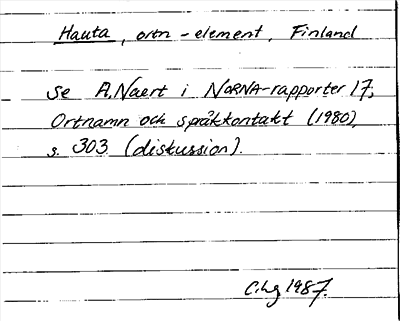 Hauta, ortn-element, Finland
Se A. Naert i NORNA-rapporter 17,
Ortnamn och språkkontakt (1980),
s. 303 (diskussion).
C. Lg 1987.